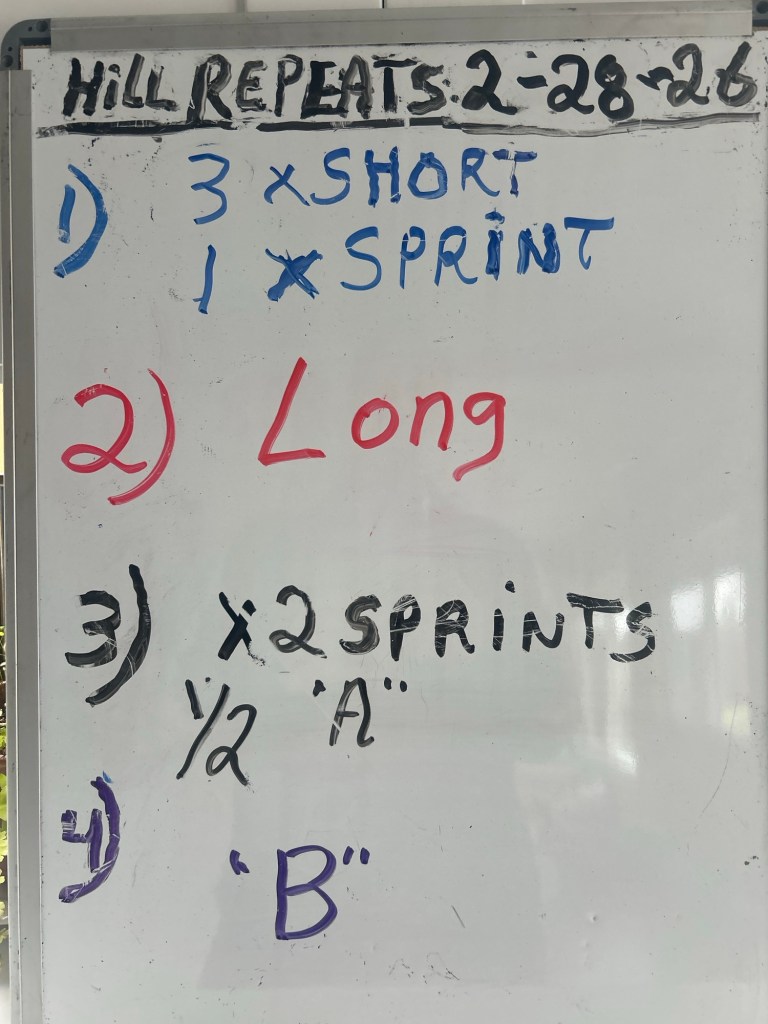 HiLL REPEATS: 2-28-26
1) 3 x SHORT
1 x SPRiNT
2) Long
3) x2 SPRiNTS
1/2 "A"
4) "B"